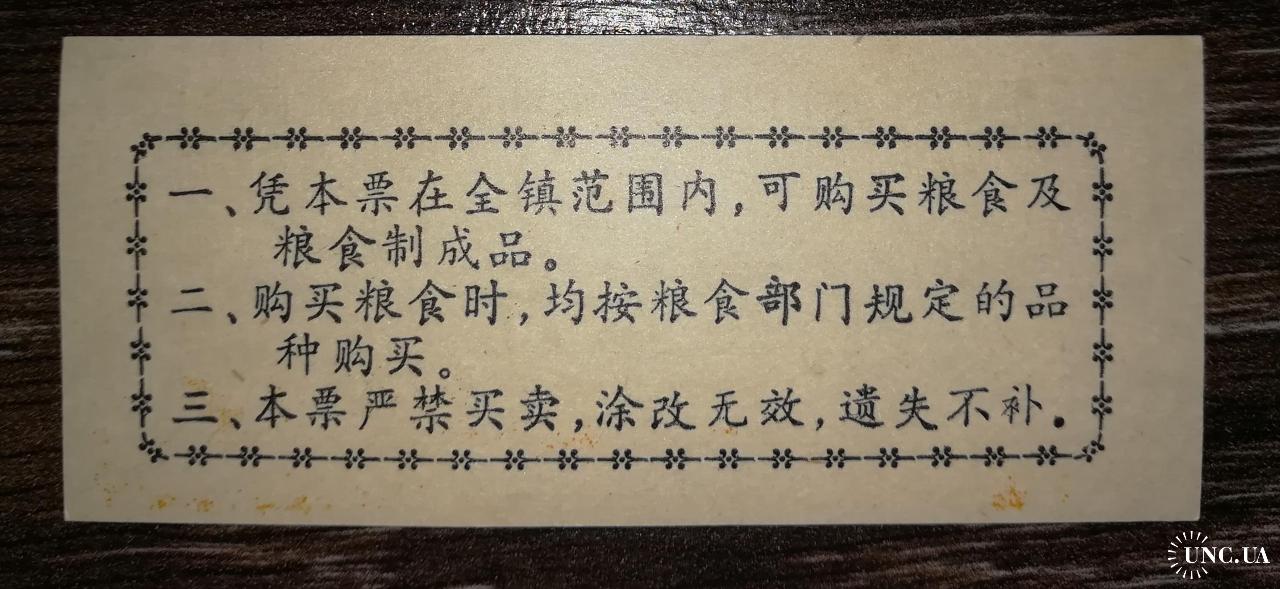 一、凭本票在全镇范围内,可购买粮食及
粮食制成品。
二、购买粮食时,均按粮食部门规定的品
种购买。
三、本票严禁买卖,涂改无效,遗失不补.
UNC.UA